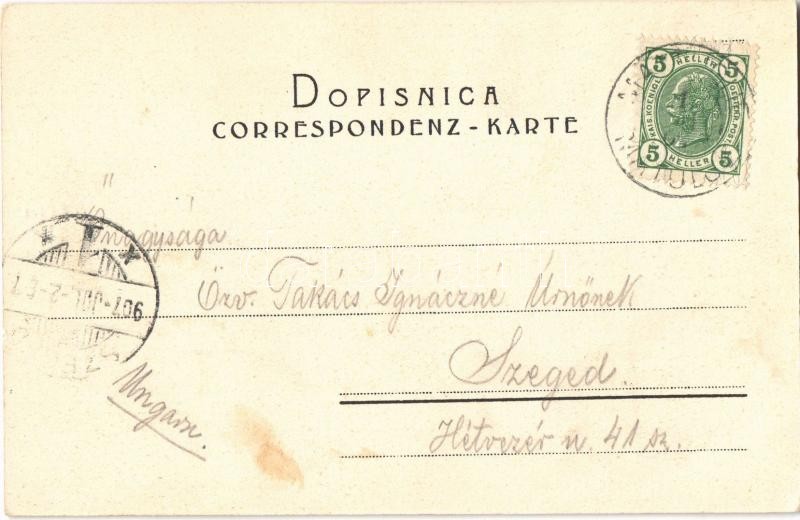 DOPISNICA
CORRESPONDENZ-KARTE
5 HELLER 5
KAIS. KOENIGL. OESTERR. POST
5 HELLER 5
Őnagysága
Özv. Takács Ignáczné Úrnőnek
Szeged.
Hétvezér u. 41 sz.
907-JUL-2-